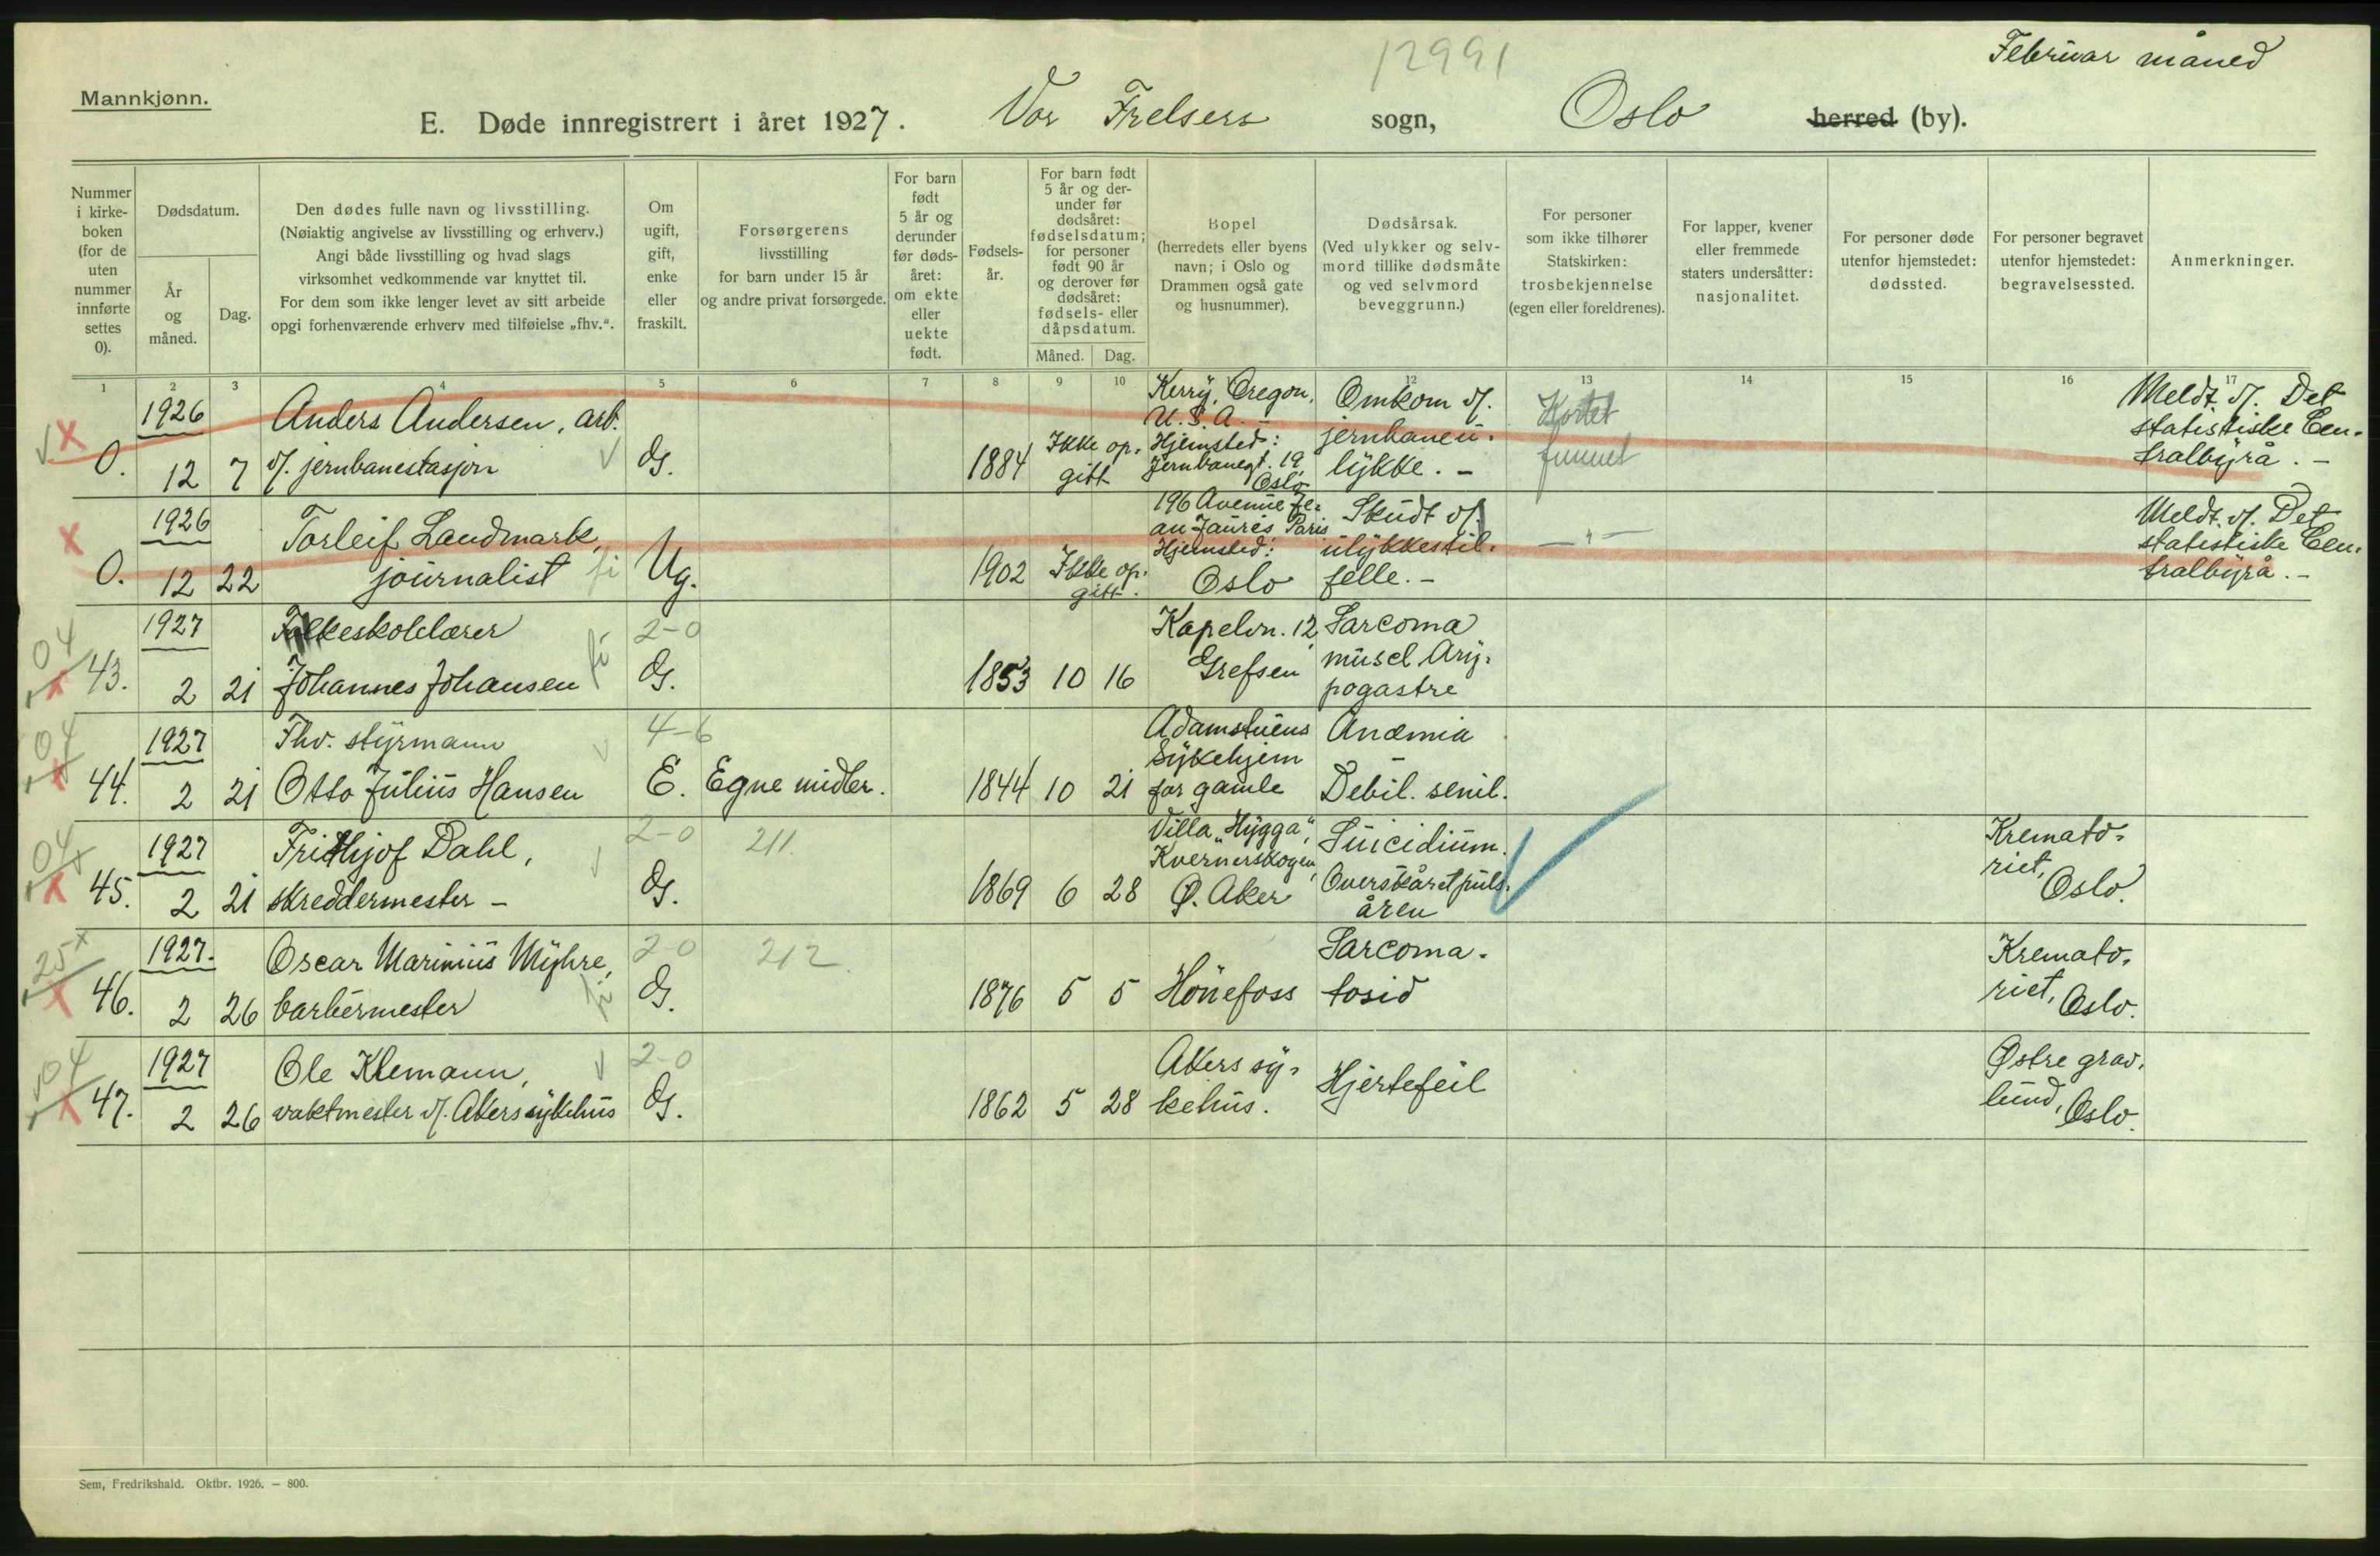 12991
Februar måned
Mannkjønn.
E. Døde innregistrert i året 1927. Vor Frelsers sogn, Oslo herred (by).
Nummer
i kirke-
boken
(for de
uten
nummer
innførte
settes
0).
Dødsdatum.
År
og
måned.
Dag.
Den dødes fulle navn og livsstilling.
(Nøiaktig angivelse av livsstilling og erhverv.)
Angi både livsstilling og hvad slags
virksomhet vedkommende var knyttet til.
For dem som ikke lenger levet av sitt arbeide
opgi forhenværende erhverv med tilføielse „fhv.“.
Om
ugift,
gift,
enke
eller
fraskilt.
Forsørgerens
livsstilling
for barn under 15 år
og andre privat forsørgede.
For barn
født
5 år og
derunder
før døds-
året:
om ekte
eller
uekte
født.
Fødsels-
år.
For barn født
5 år og der-
under før
dødsåret:
fødselsdatum;
for personer
født 90 år
og derover før
dødsåret:
fødsels- eller
dåpsdatum.
Måned. Dag.
Bopel
(herredets eller byens
navn; i Oslo og
Drammen også gate
og husnummer).
Dødsårsak.
(Ved ulykker og selv-
mord tillike dødsmåte
og ved selvmord
beveggrunn.)
For personer
som ikke tilhører
Statskirken:
trosbekjennelse
(egen eller foreldrenes).
For lapper, kvener
eller fremmede
staters undersåtter:
nasjonalitet.
For personer døde
utenfor hjemstedet:
dødssted.
For personer begravet
utenfor hjemstedet:
begravelsessted.
Anmerkninger.
1 2 3 4 5 6 7 8 9 10 12 13 14 15 16 17
0.
1926
12 7
Anders Andersen, arb.
v/. jernbanestasjon
G.
1884
Ikke op-
gitt
Kerry, Oregon,
U.S.A. -
Hjemsted:
Jernbanegt. 19
Oslo
Omkom v/.
jernbaneu-
lykke. -
Kortet
funnet
Meldt v/. Det
statistiske Cen-
tralbyrå. -
0.
1926
12 22
Torleif Landmark,
journalist fi
Ug.
1902
Ikke op-
gitt.
196 Avenue Je-
an Jaurés Paris
Hjemsted:
Oslo
Skudt v/.
ulykkestil-
felle. -
- " -
Meldt v/. Det
statistiske Cen-
tralbyrå. -
04
43.
1927
2 21
Folkeskolelærer
Johannes Johansen fi
2-0
G.
1853 10 16
Kapelvn. 12,
Grefsen
Sarcoma
musel
pogastre
04
44.
1927
2 21
Fhv. styrmann
Otto Julius Hansen
4-6
E.
Egne midler.
1844 10 21
Adamstuens
Sykehjem
for gamle
Anæmia
Debil. senil.
04
45.
1927
2 21
Frithjof Dahl,
skreddermester -
2-0
G.
211
1869 6 28
Villa „Hygga“,
Kvernerskogen,
Ø. Aker
Suicidium.
Overskåret puls-
åren
Kremato-
riet,
Oslo.
25
46.
1927.
2 26
Oscar Marinius Myhre,
barbermester fi
2-0
G.
212
1876 5 5
Hönefoss
Sarcoma-
tosid
Kremato-
riet,
Oslo.
04
47.
1927
2 26
Ole Klemann,
vaktmester v/. Akers sykehus
2-0
G.
1862 5 28
Akers sy-
kehus.
Hjertefeil
Østre grav-
lund,
Oslo.
Sem, Fredrikshald. Oktbr. 1926. — 800.